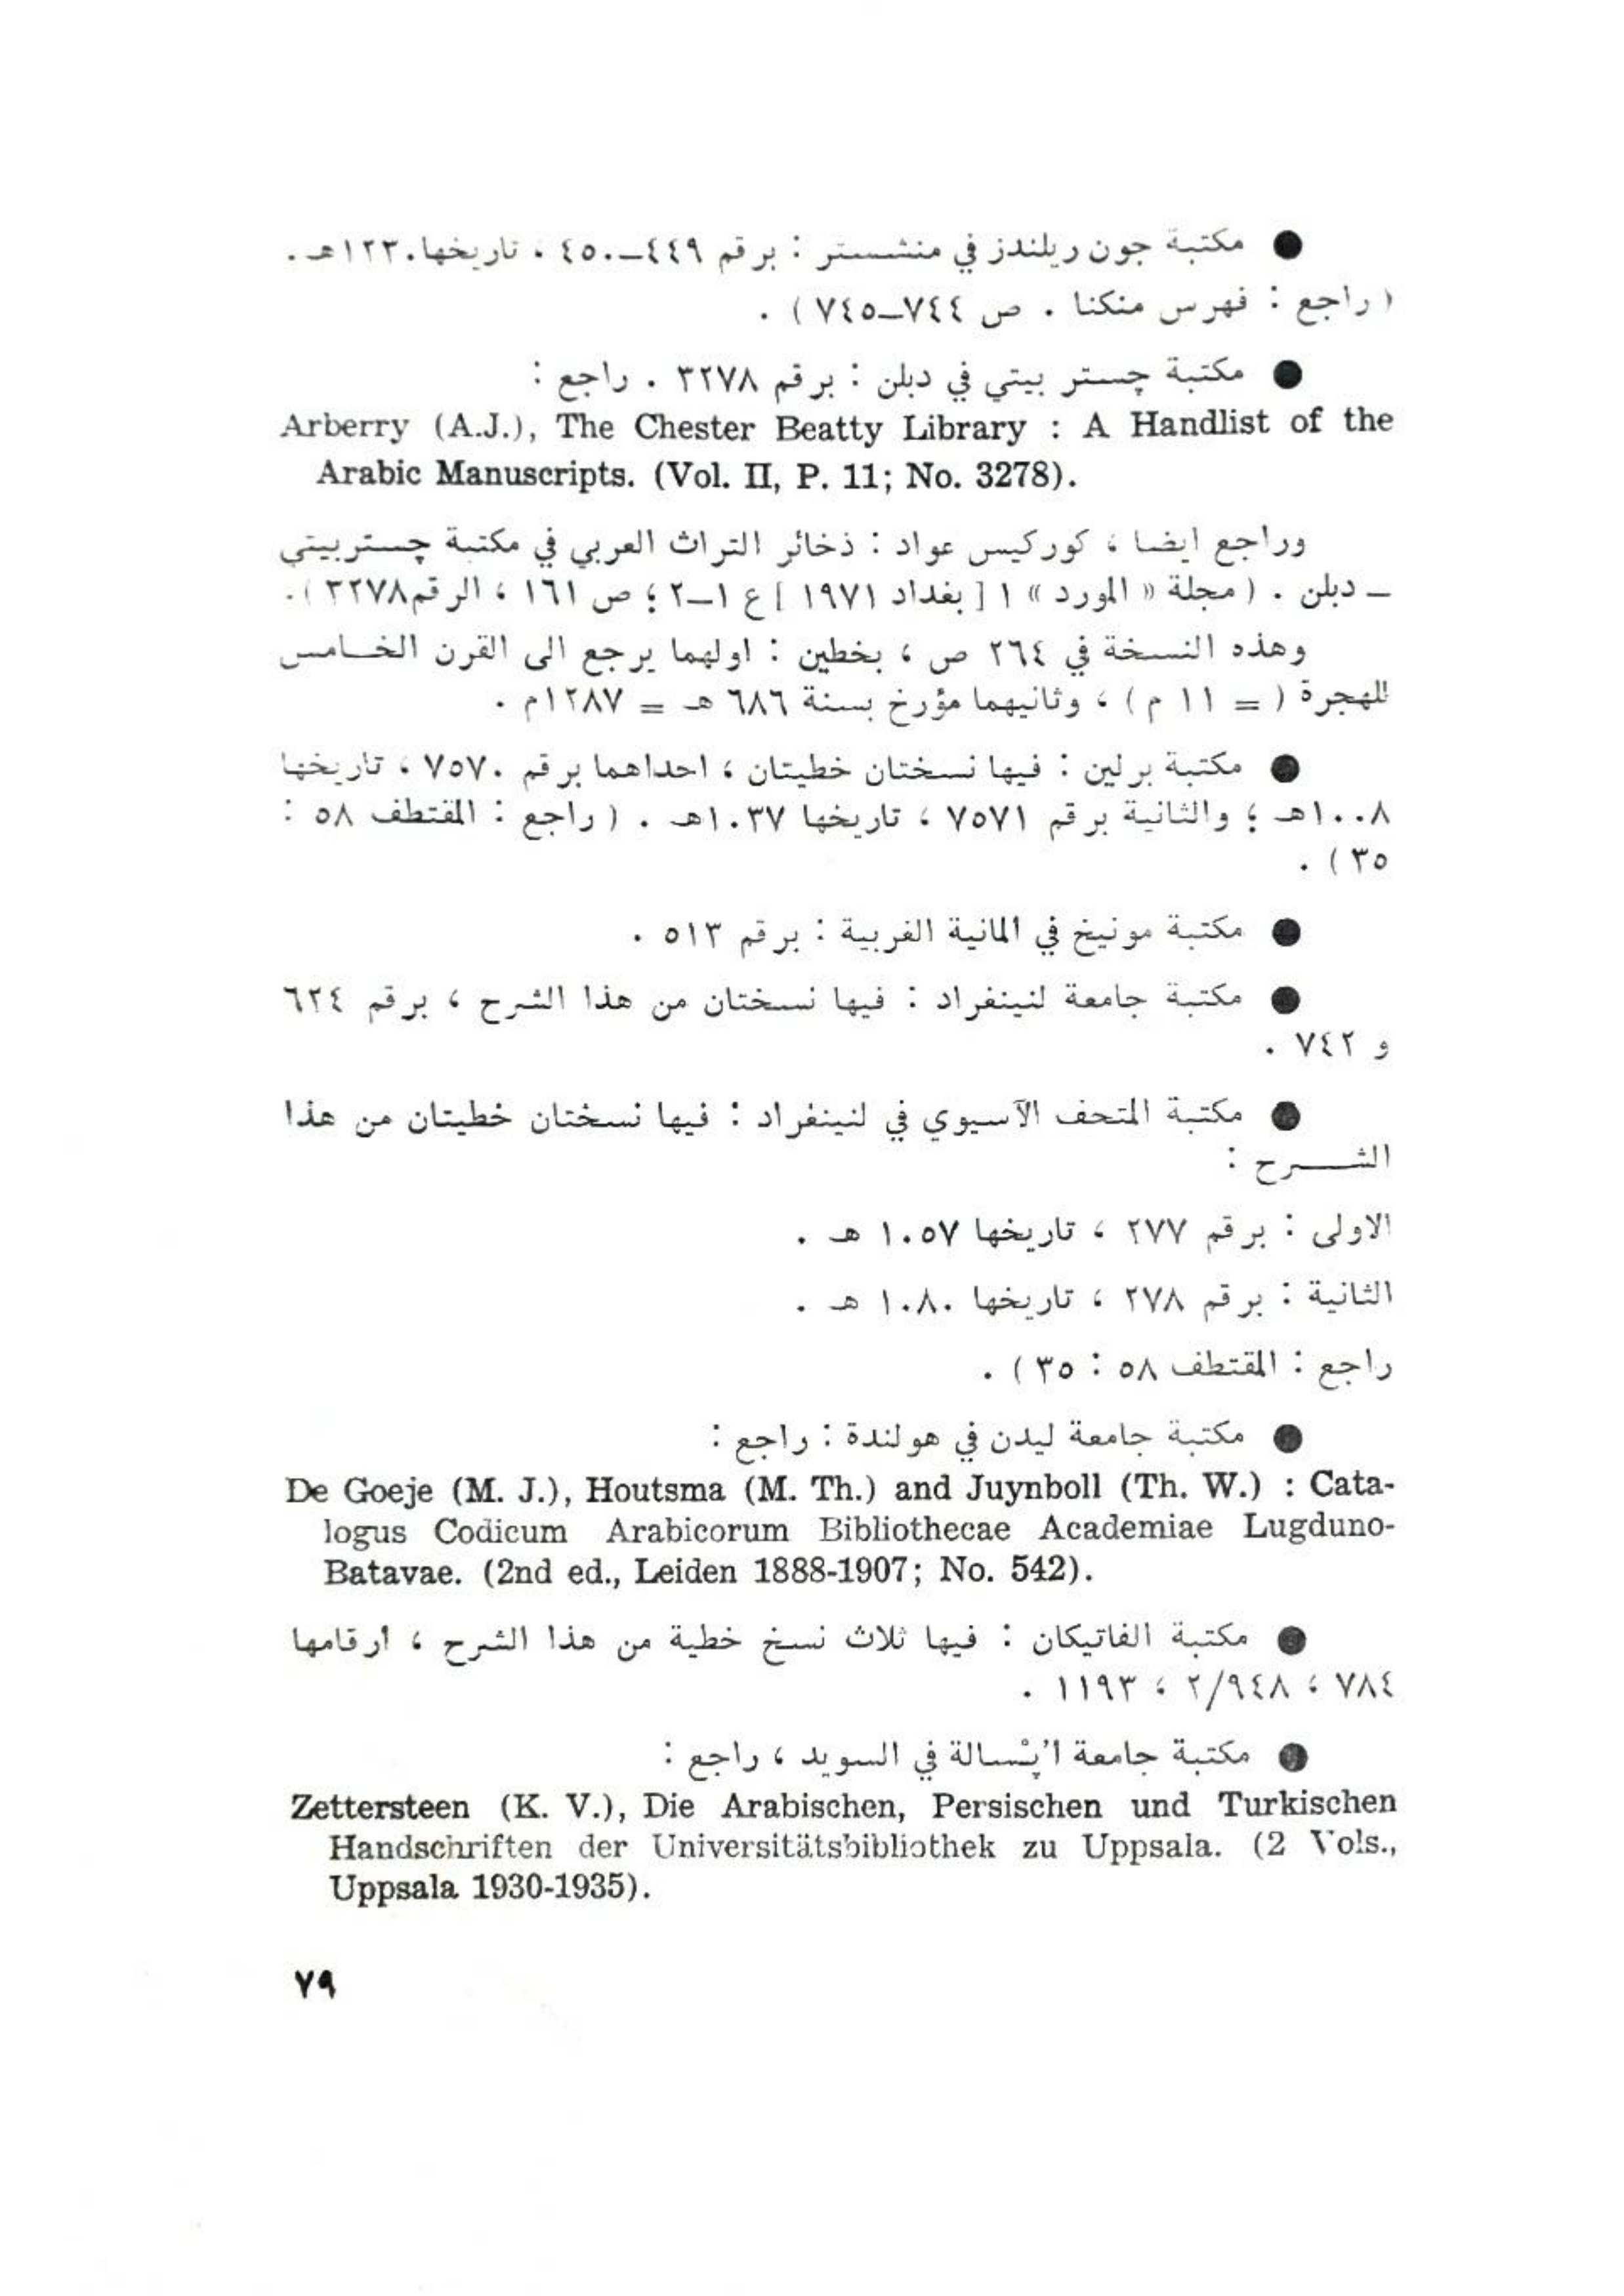 ● مكتبة جون ريلندز في منشستر : برقم ٤٤٩ـ٤٥٠ ، تاريخها ١٢٣٠هـ .
( راجع : فهرس منكنا . ص ٧٤٤ـ٧٤٥ ) .
● مكتبة چستر بيتي في دبلن : برقم ٣٢٧٨ . راجع :
Arberry (A.J.), The Chester Beatty Library : A Handlist of the
Arabic Manuscripts. (Vol. II, P. 11; No. 3278).
وراجع ايضا ، كوركيس عواد : ذخائر التراث العربي في مكتبة چستربيتي
ـ دبلن . ( مجلة « المورد » ١ [ بغداد ١٩٧١ ] ع ١ـ٢ ؛ ص ١٦١ ، الرقم ٣٢٧٨ ) .
وهذه النسخة في ٢٦٤ ص ، بخطين : اولهما يرجع الى القرن الخـامس
للهجرة ( = ١١ م ) ، وثانيهما مؤرخ بسنة ٦٨٦ هـ = ١٢٨٧م .
● مكتبة برلين : فيها نسختان خطيتان ، احداهما برقم ٧٥٧٠ ، تاريخها
١٠٠٨هـ ؛ والثانية برقم ٧٥٧١ ، تاريخها ١٠٣٧هـ . ( راجع : المقتطف ٥٨ :
٣٥ ) .
● مكتبة مونيخ في المانية الغربية : برقم ٥١٣ .
● مكتبة جامعة لنينغراد : فيها نسختان من هذا الشرح ، برقم ٦٢٤
و ٧٤٢ .
● مكتبة المتحف الآسيوي في لنينغراد : فيها نسختان خطيتان من هذا
الشــــرح :
الاولى : برقم ٢٧٧ ، تاريخها ١٠٥٧ هـ .
الثانية : برقم ٢٧٨ ، تاريخها ١٠٨٠ هـ .
راجع : المقتطف ٥٨ : ٣٥ ) .
● مكتبة جامعة ليدن في هولندة : راجع :
De Goeje (M. J.), Houtsma (M. Th.) and Juynboll (Th. W.) : Cata-
logus Codicum Arabicorum Bibliothecae Academiae Lugduno-
Batavae. (2nd ed., Leiden 1888-1907; No. 542).
● مكتبة الفاتيكان : فيها ثلاث نسخ خطية من هذا الشرح ، أرقامها
٧٨٤ ؛ ٢/٩٤٨ ؛ ١١٩٣ .
● مكتبة جامعة اُپْسالة في السويد ، راجع :
Zettersteen (K. V.), Die Arabischen, Persischen und Turkischen
Handschriften der Universitätsbibliothek zu Uppsala. (2 Vols.,
Uppsala 1930-1935).
٧٩